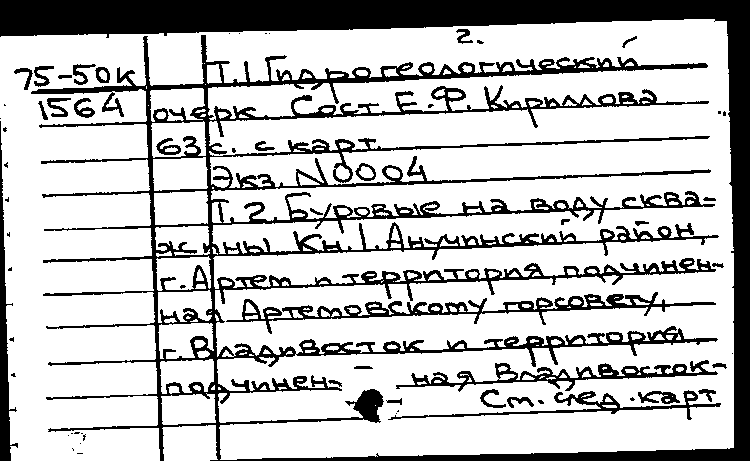 2.
75-50к Т.1.Гидрогеологический
1564 очерк. Сост. Е.Ф. Кириллова
63с. с карт.
Экз. N0004
Т. 2. Буровые на воду сква=
жины Кн.1. Анучинский район,
г. Артем и территория, подчинен-
ная Артемовскому горсовету,
г. Владивосток и территория,
подчинен= ная Владивосток-
См. след. карт